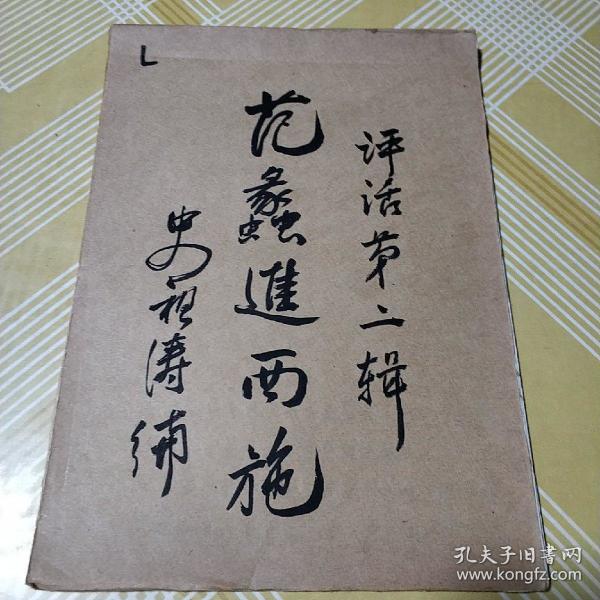 评话第二辑
范蠡進西施
史祖濤编
孔夫子旧書网
www.kongfz.com